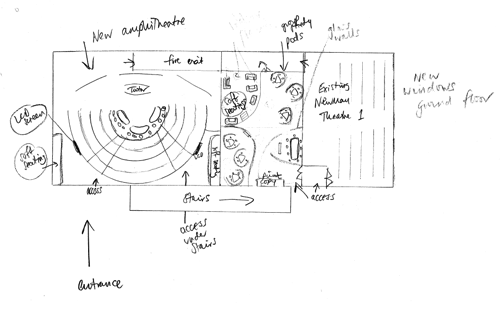 New amphitheatre
fire exit
group
pods
glass
walls
Tutor
LCD
screen
soft
seating
soft
seating
Existing
Newman
Theatre 1
New
windows
ground floor
LCD
print
copy
access
access
Stairs →
access
under
stairs
entrance